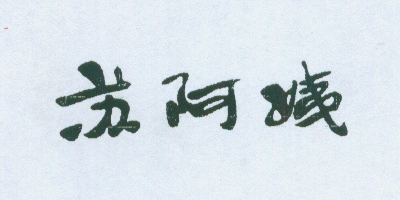 苏阿姨